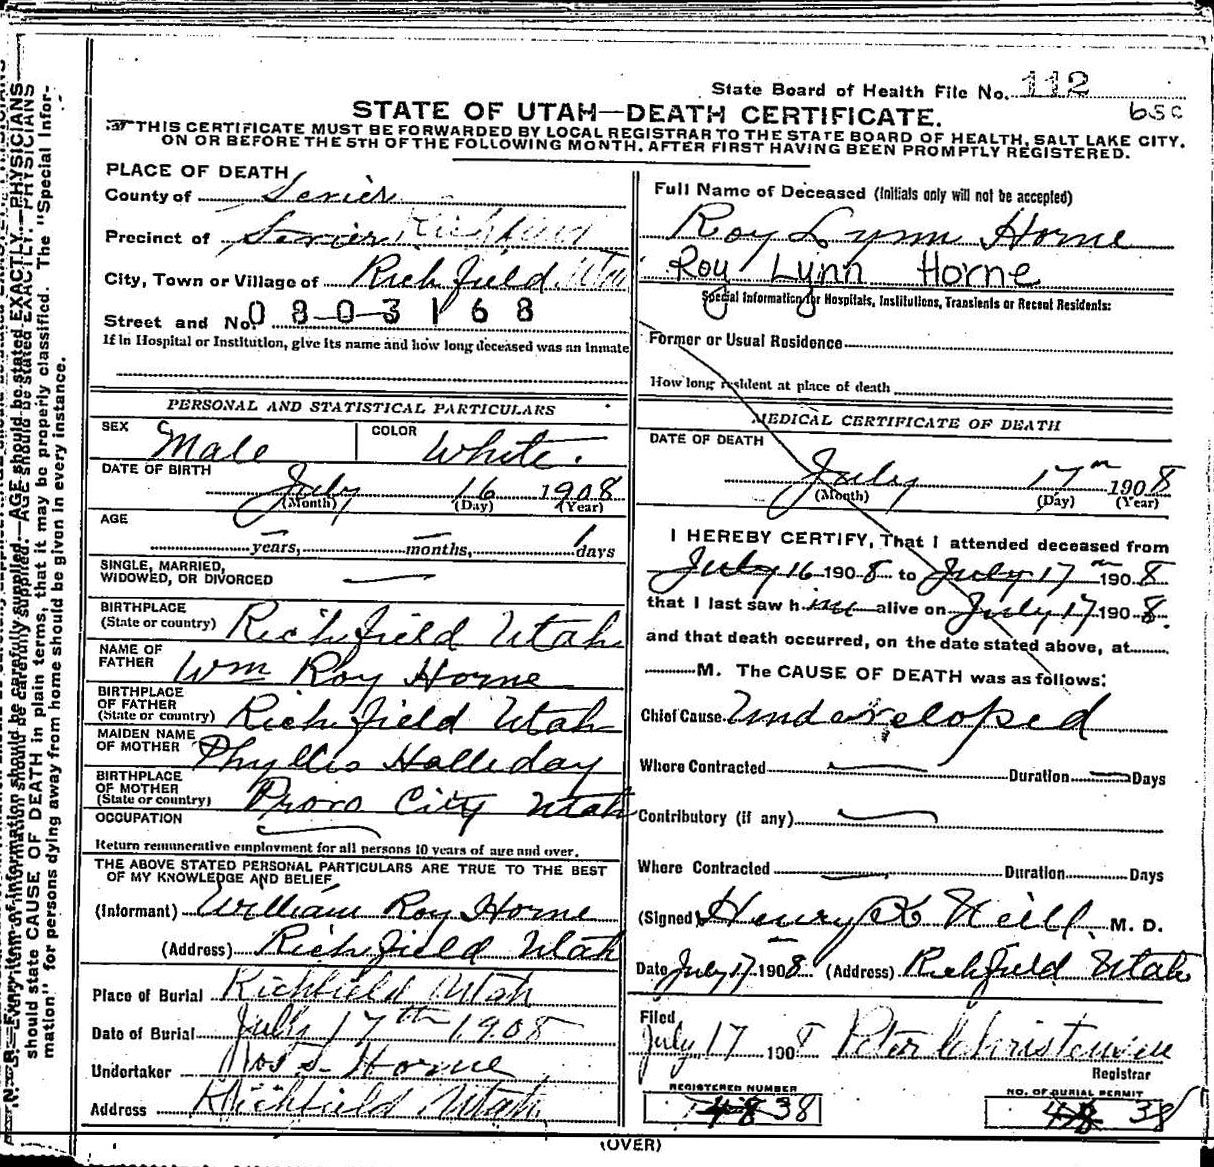 State Board of Health File No. 112
bsc
STATE OF UTAH—DEATH CERTIFICATE.
THIS CERTIFICATE MUST BE FORWARDED BY LOCAL REGISTRAR TO THE STATE BOARD OF HEALTH, SALT LAKE CITY,
ON OR BEFORE THE 5TH OF THE FOLLOWING MONTH, AFTER FIRST HAVING BEEN PROMPTLY REGISTERED.
PLACE OF DEATH
County of Sevier
Precinct of Sevier Richfield
City, Town or Village of Richfield Utah
Street and No. 0803168
If in Hospital or Institution, give its name and how long deceased was an inmate
PERSONAL AND STATISTICAL PARTICULARS
SEX Male COLOR White.
DATE OF BIRTH
July 16 1908
(Month) (Day) (Year)
AGE
— years, — months, 1 days
SINGLE, MARRIED,
WIDOWED, OR DIVORCED —
BIRTHPLACE
(State or country) Richfield Utah
NAME OF
FATHER Wm Roy Horne
BIRTHPLACE
OF FATHER
(State or country) Richfield Utah
MAIDEN NAME
OF MOTHER Phyllis Halliday
BIRTHPLACE
OF MOTHER
(State or country) Provo City Utah
OCCUPATION
Return remunerative employment for all persons 10 years of age and over.
THE ABOVE STATED PERSONAL PARTICULARS ARE TRUE TO THE BEST
OF MY KNOWLEDGE AND BELIEF
(Informant) William Roy Horne
(Address) Richfield Utah
Place of Burial Richfield Utah
Date of Burial July 17th 1908
Undertaker Horne
Address Richfield Utah
Full Name of Deceased (Initials only will not be accepted)
Roy Lynn Horne
Roy Lynn Horne
Special Information for Hospitals, Institutions, Transients or Recent Residents:
Former or Usual Residence
How long resident at place of death
MEDICAL CERTIFICATE OF DEATH
DATE OF DEATH
July 17th 1908
(Month) (Day) (Year)
I HEREBY CERTIFY, That I attended deceased from
July 16 1908 to July 17th 1908
that I last saw him alive on July 17 1908.
and that death occurred, on the date stated above, at
M. The CAUSE OF DEATH was as follows:
Chief Cause Undeveloped
Where Contracted — Duration — Days
Contributory (if any) —
Where Contracted — Duration Days
(Signed) Henry K Neill, M. D.
Date July 17 1908 (Address) Richfield Utah
Filed
July 17 1908 Peter Christensen
Registrar
REGISTERED NUMBER
48 38
NO. OF BURIAL PERMIT
48 38
(OVER)
N. B.—Every item of information should be carefully supplied. AGE should be stated EXACTLY. PHYSICIANS
should state CAUSE OF DEATH in plain terms, that it may be properly classified. The "Special Infor-
mation" for persons dying away from home should be given in every instance.